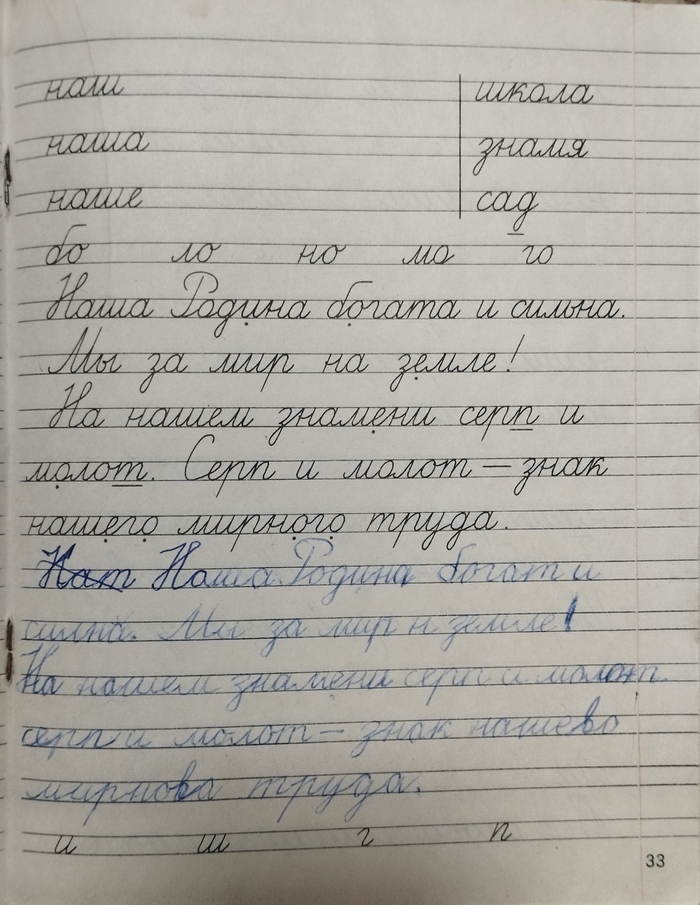 наш школа
наша знамя
наше сад
бо ло но мо го
Наша Родина богата и сильна.
Мы за мир на земле!
На нашем знамени серп и
молот. Серп и молот — знак
нашего мирного труда.
Нат Наша Родина богат и
силна. Мы за мир н земле!
На нашем знамени серп и молот
серп и молот — знак нашево
мирнова труда.
и ш г п
33